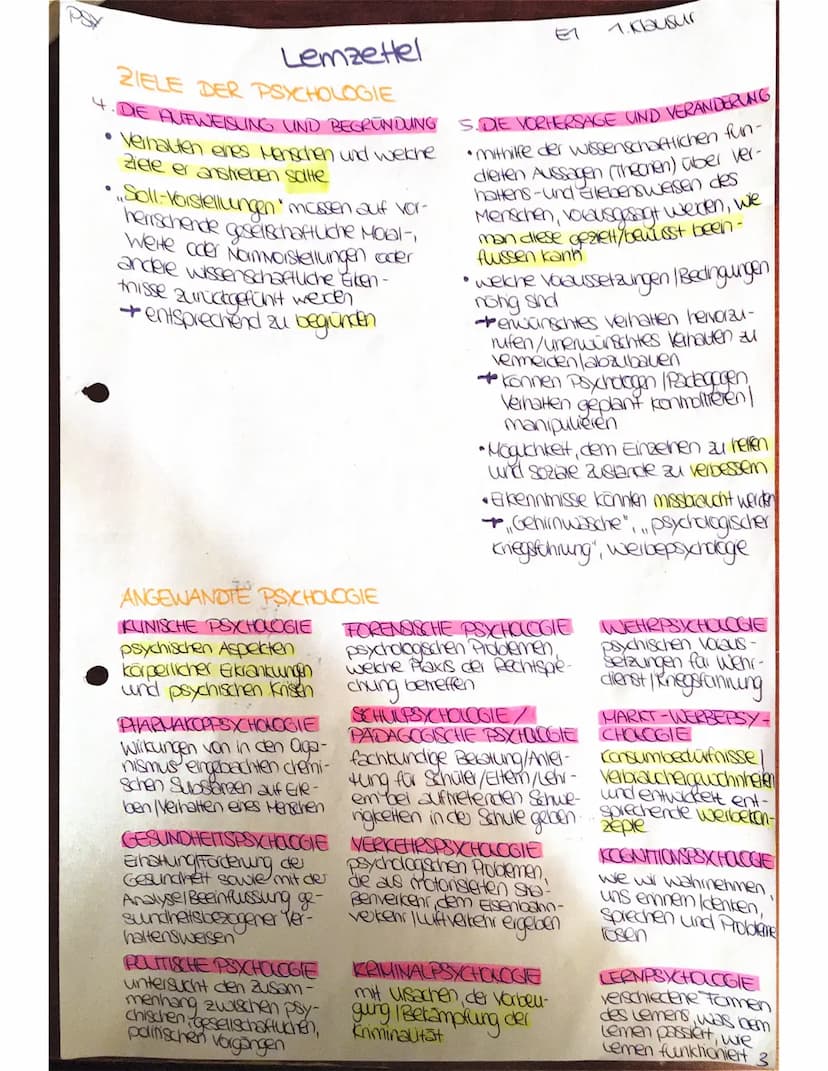 PSY
E1 1. Klausur
Lernzettel
ZIELE DER PSYCHOLOGIE
4. DIE AUFWEISUNG UND BEGRÜNDUNG
• Verhalten eines Menschen und welche
Ziele er anstreben sollte
• „Soll-Vorstellungen" müssen auf vor-
herrschende gesellschaftliche Moral-,
Werte oder Normvorstellungen oder
andere wissenschaftliche Erken-
tnisse zurückgeführt werden
+ entsprechend zu begründen
5. DIE VORHERSAGE UND VERÄNDERUNG
• mithilfe der wissenschaftlichen fun-
dierten Aussagen (Theorien) über Ver-
haltens- und Erlebensweisen des
Menschen, vorausgesagt werden, wie
man diese gezielt/bewusst beein-
flussen kann
• welche Voraussetzungen/Bedingungen
nötig sind
+ erwünschtes Verhalten hervorzu-
rufen/unerwünschtes Verhalten zu
vermeiden/abzubauen
+ können Psychologen/Pädagogen,
Verhalten geplant kontrollieren/
manipulieren
• Möglichkeit, dem Einzelnen zu helfen
und soziale Zustände zu verbessern
• Erkenntnisse könnten missbraucht werden
+ „Gehirnwäsche", „psychologischer
Kriegsführung", Werbepsychologie
ANGEWANDTE PSYCHOLOGIE
KLINISCHE PSYCHOLOGIE
psychischen Aspekten
körperlicher Erkrankungen
und psychischen Krisen
FORENSISCHE PSYCHOLOGIE
psychologischen Problemen,
welche Praxis der Rechtspre-
chung betreffen
WEHRPSYCHOLOGIE
psychischen Voraus-
setzungen für Wehr-
dienst/Kriegsführung
PHARMAKOPSYCHOLOGIE
Wirkungen von in den Orga-
nismus eingebrachten chemi-
schen Substanzen auf Erle-
ben/Verhalten eines Menschen
SCHULPSYCHOLOGIE/
PÄDAGOGISCHE PSYCHOLOGIE
fachkundige Beratung/Anlei-
tung für Schüler/Eltern/Lehr-
ern bei auftretenden Schwie-
rigkeiten in der Schule geben
MARKT-WERBEPSY-
CHOLOGIE
Konsumbedürfnisse/
Verbrauchergewohnheiten
und entwickelt ent-
sprechende Werbekon-
zepte
GESUNDHEITSPSYCHOLOGIE
Erhaltung/Förderung der
Gesundheit sowie mit der
Analyse/Beeinflussung ge-
sundheitsbezogener Ver-
haltensweisen
VERKEHRSPSYCHOLOGIE
psychologischen Problemen,
die aus motorisierten Stra-
ßenverkehr, dem Eisenbahn-
verkehr/Luftverkehr ergeben
KOGNITIONSPSYCHOLOGIE
wie wir wahrnehmen,
uns erinnern/denken,
sprechen und Probleme
lösen
POLITISCHE PSYCHOLOGIE
untersucht den Zusam-
menhang zwischen psy-
chischen, gesellschaftlichen,
politischen Vorgängen
KRIMINALPSYCHOLOGIE
mit Ursachen, der Vorbeu-
gung/Bekämpfung der
Kriminalität
LERNPSYCHOLOGIE
verschiedene Formen
des Lernens, was beim
Lernen passiert, wie
Lernen funktioniert 3